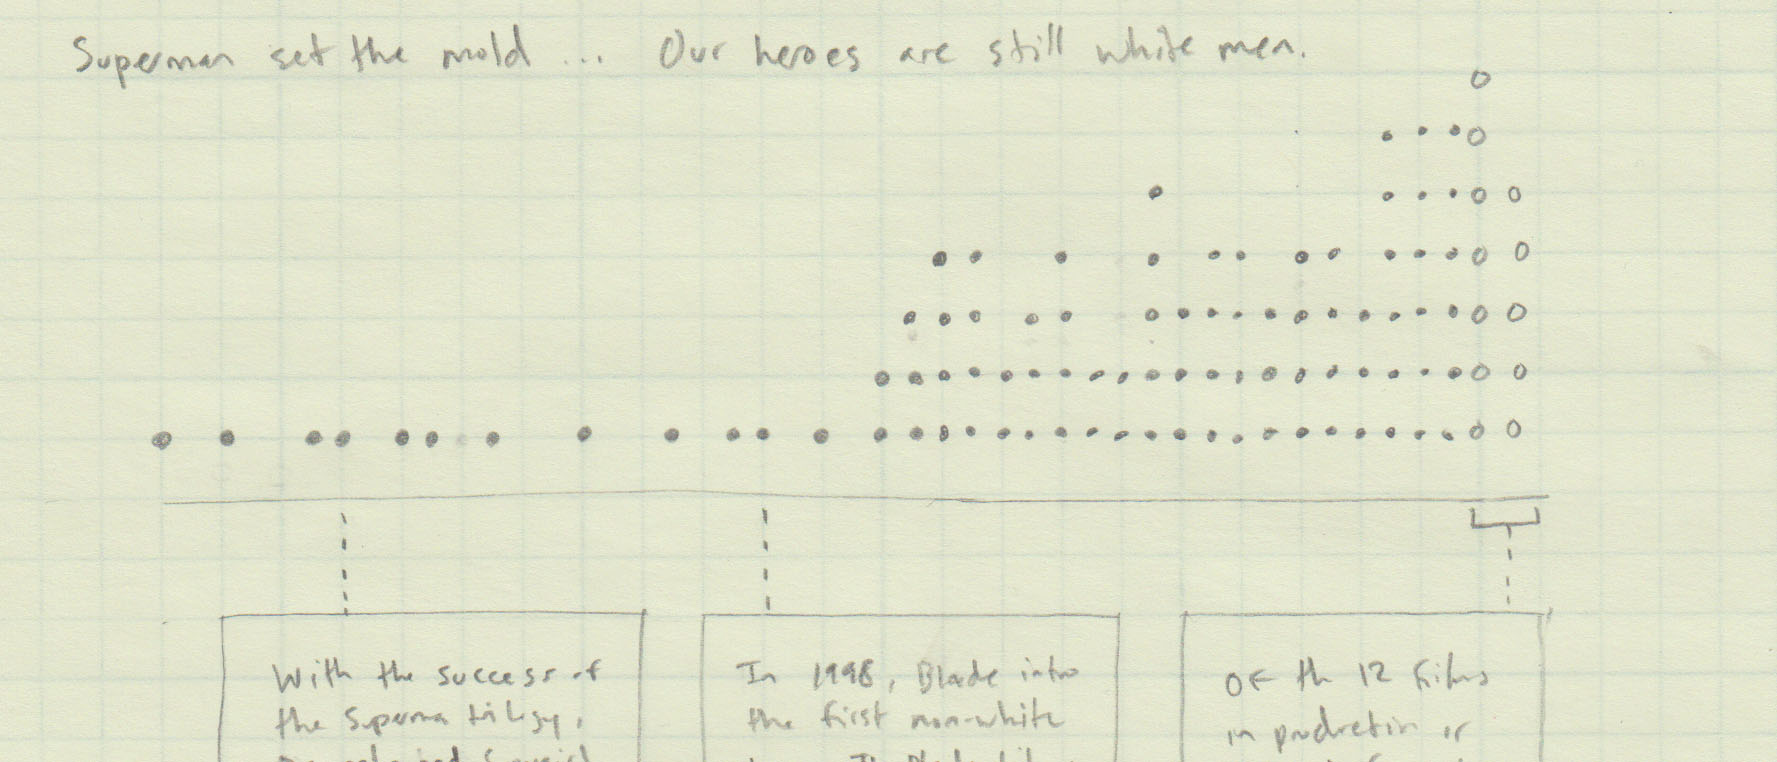 Superman set the mold ... Our heroes are still white men.
With the success of
the Superma trilogy,
In 1998, Blade intro
the first non-white
OF th 12 films
in production or